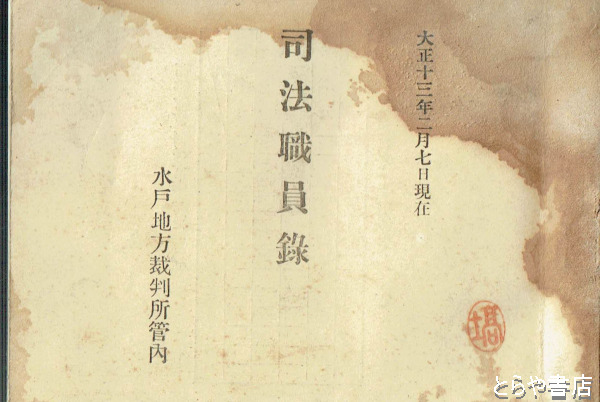 大正十三年二月七日現在
司法職員錄
水戸地方裁判所管內
とらや書店